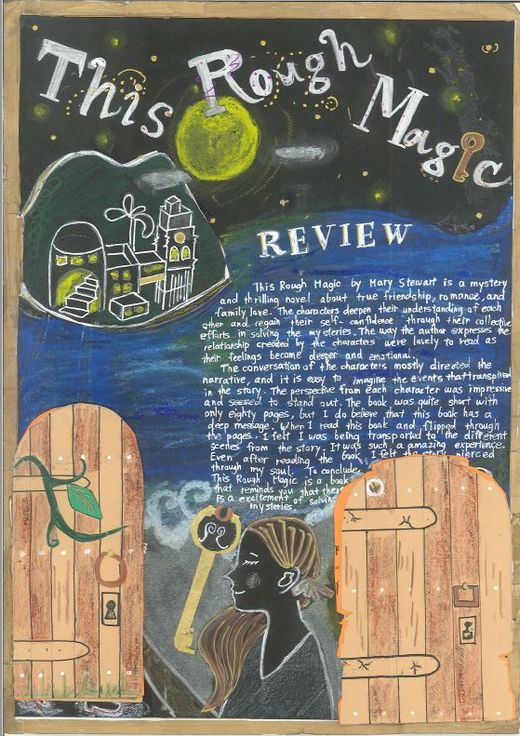 This Rough Magic
REVIEW
This Rough Magic by Mary Stewart is a mystery
and thrilling novel about true friendship, romance, and
family love. The characters deepen their understanding of each
other and regain their self-confidence through their collective
efforts in solving the mysteries. The way the author expresses the
relationship created by the characters were lovely to read as
their feelings become deeper and emotional.
The conversation of the characters mostly directed the
narrative, and it is easy to imagine the events that transpired
in the story. The perspective from each character was impressive
and seemed to stand out. The book was quite short with
only eighty pages, but I do believe that this book has a
deep message. When I read this book and flipped through
the pages. I felt I was being transported to the different
scenes from the story. It was such a amazing experience.
Even after reading the book, I felt the story pierced
through my soul. To conclude,
This Rough Magic is a book
that reminds you that there
is a excitement of solving
mysteries.